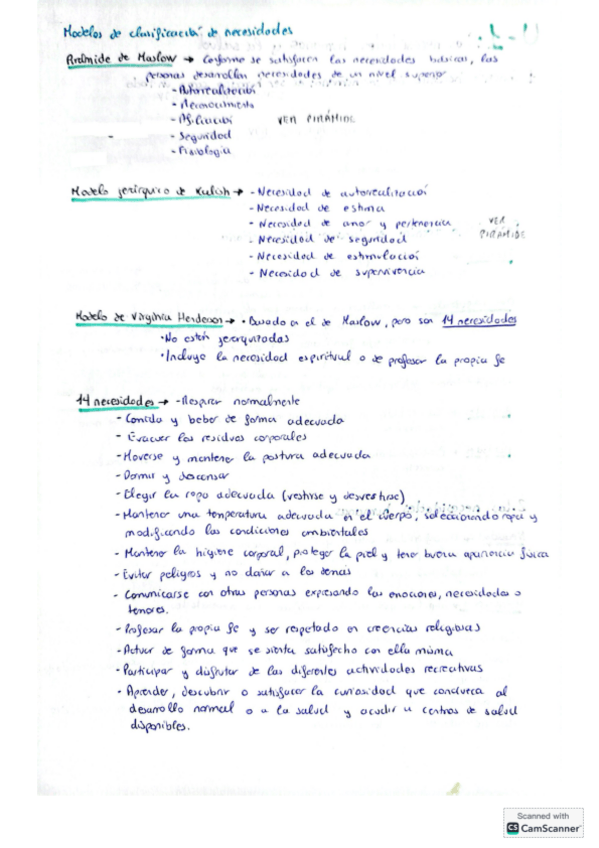 Modelos de clasificación de necesidades
Pirámide de Maslow → Conforme se satisfacen las necesidades básicas, las
personas desarrollan necesidades de un nivel superior
- Autorrealización
- Reconocimiento
- Afiliación VER PIRÁMIDE
- Seguridad
- Fisiología
Modelo jerárquico de Kalish → - Necesidad de autorrealización
- Necesidad de estima
- Necesidad de amor y pertenencia VER
- Necesidad de seguridad PIRÁMIDE
- Necesidad de estimulación
- Necesidad de supervivencia
Modelo de Virginia Henderson → • Basado en el de Maslow, pero son 14 necesidades
• No están jerarquizadas
• Incluye la necesidad espiritual o de profesar la propia fe
14 necesidades → - Respirar normalmente
- Comida y beber de forma adecuada
- Evacuar los residuos corporales
- Moverse y mantener la postura adecuada
- Dormir y descansar
- Elegir la ropa adecuada (vestirse y desvestirse)
- Mantener una temperatura adecuada en el cuerpo, seleccionando ropa y
modificando las condiciones ambientales
- Mantener la higiene corporal, proteger la piel y tener buena apariencia física
- Evitar peligros y no dañar a los demás
- Comunicarse con otras personas expresando las emociones, necesidades o
temores.
- Profesar la propia fe y ser respetado en creencias religiosas
- Actuar de forma que se sienta satisfecho con ella misma
- Participar y disfrutar de las diferentes actividades recreativas
- Aprender, descubrir o satisfacer la curiosidad que conlleva al
desarrollo normal o a la salud y acudir a centros de salud
disponibles.
Scanned with
CS CamScanner